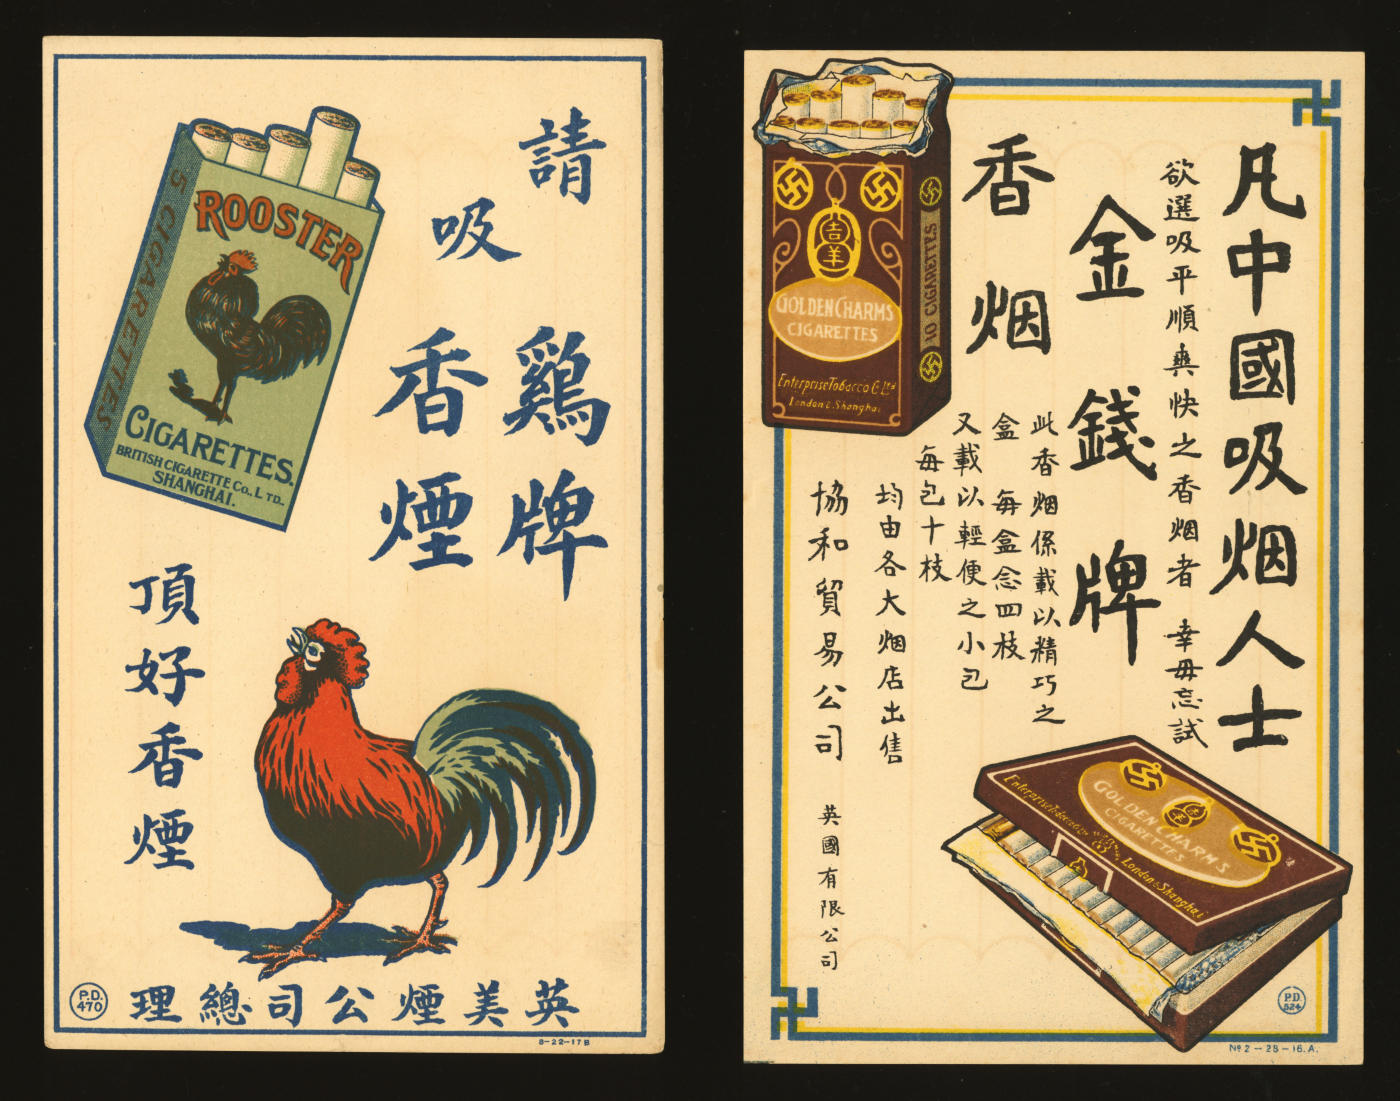 請
吸
鷄牌
香煙
5 CIGARETTES
ROOSTER
CIGARETTES.
BRITISH CIGARETTE CO., LTD.
SHANGHAI.
頂好香煙
理總司公煙美英
P.D.
470
8-22-17B
凡中國吸烟人士
欲選吸平順爽快之香烟者 幸毋忘試
金錢牌
香烟
此香烟係載以精巧之
盒 每盒念四枝
又載以輕便之小包
每包十枝
均由各大烟店出售
協和貿易公司 英國有限公司
吉羊
GOLDEN CHARMS
CIGARETTES
Enterprise Tobacco Co Ltd
London & Shanghai
10 CIGARETTES
GOLDEN CHARMS
CIGARETTES
Enterprise Tobacco Co Ltd
London & Shanghai
P.D.
524
No 2-28-16.A.